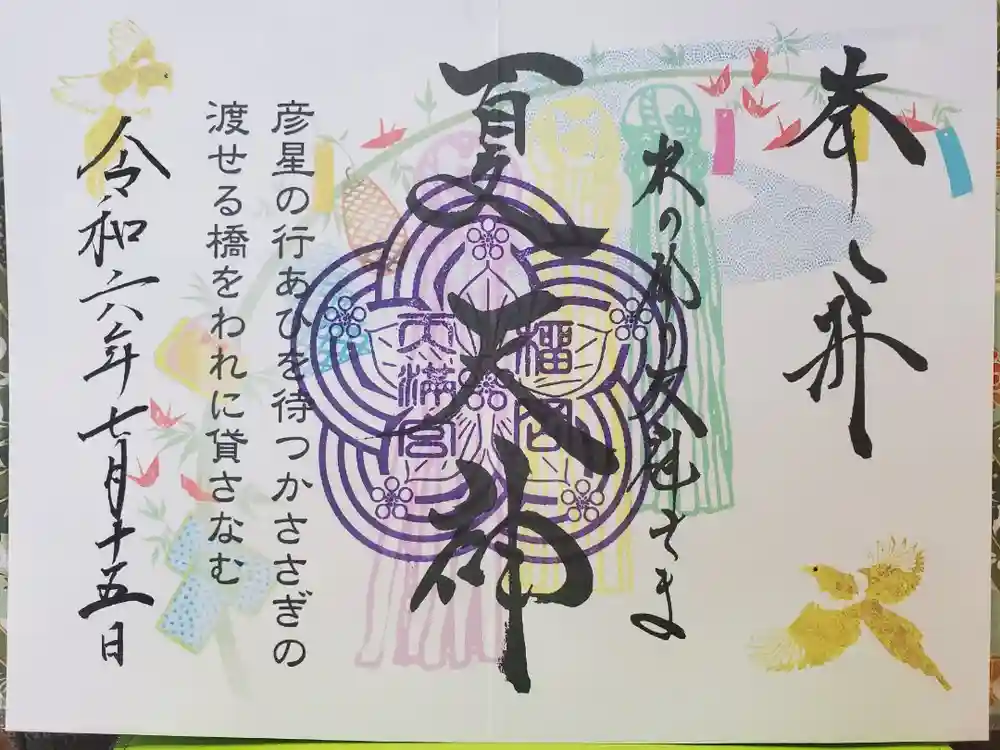 奉拝
天神さま
夏天神
榴岡
天満宮
彦星の行あひを待つかささぎの
渡せる橋をわれに貸さなむ
令和六年七月十五日